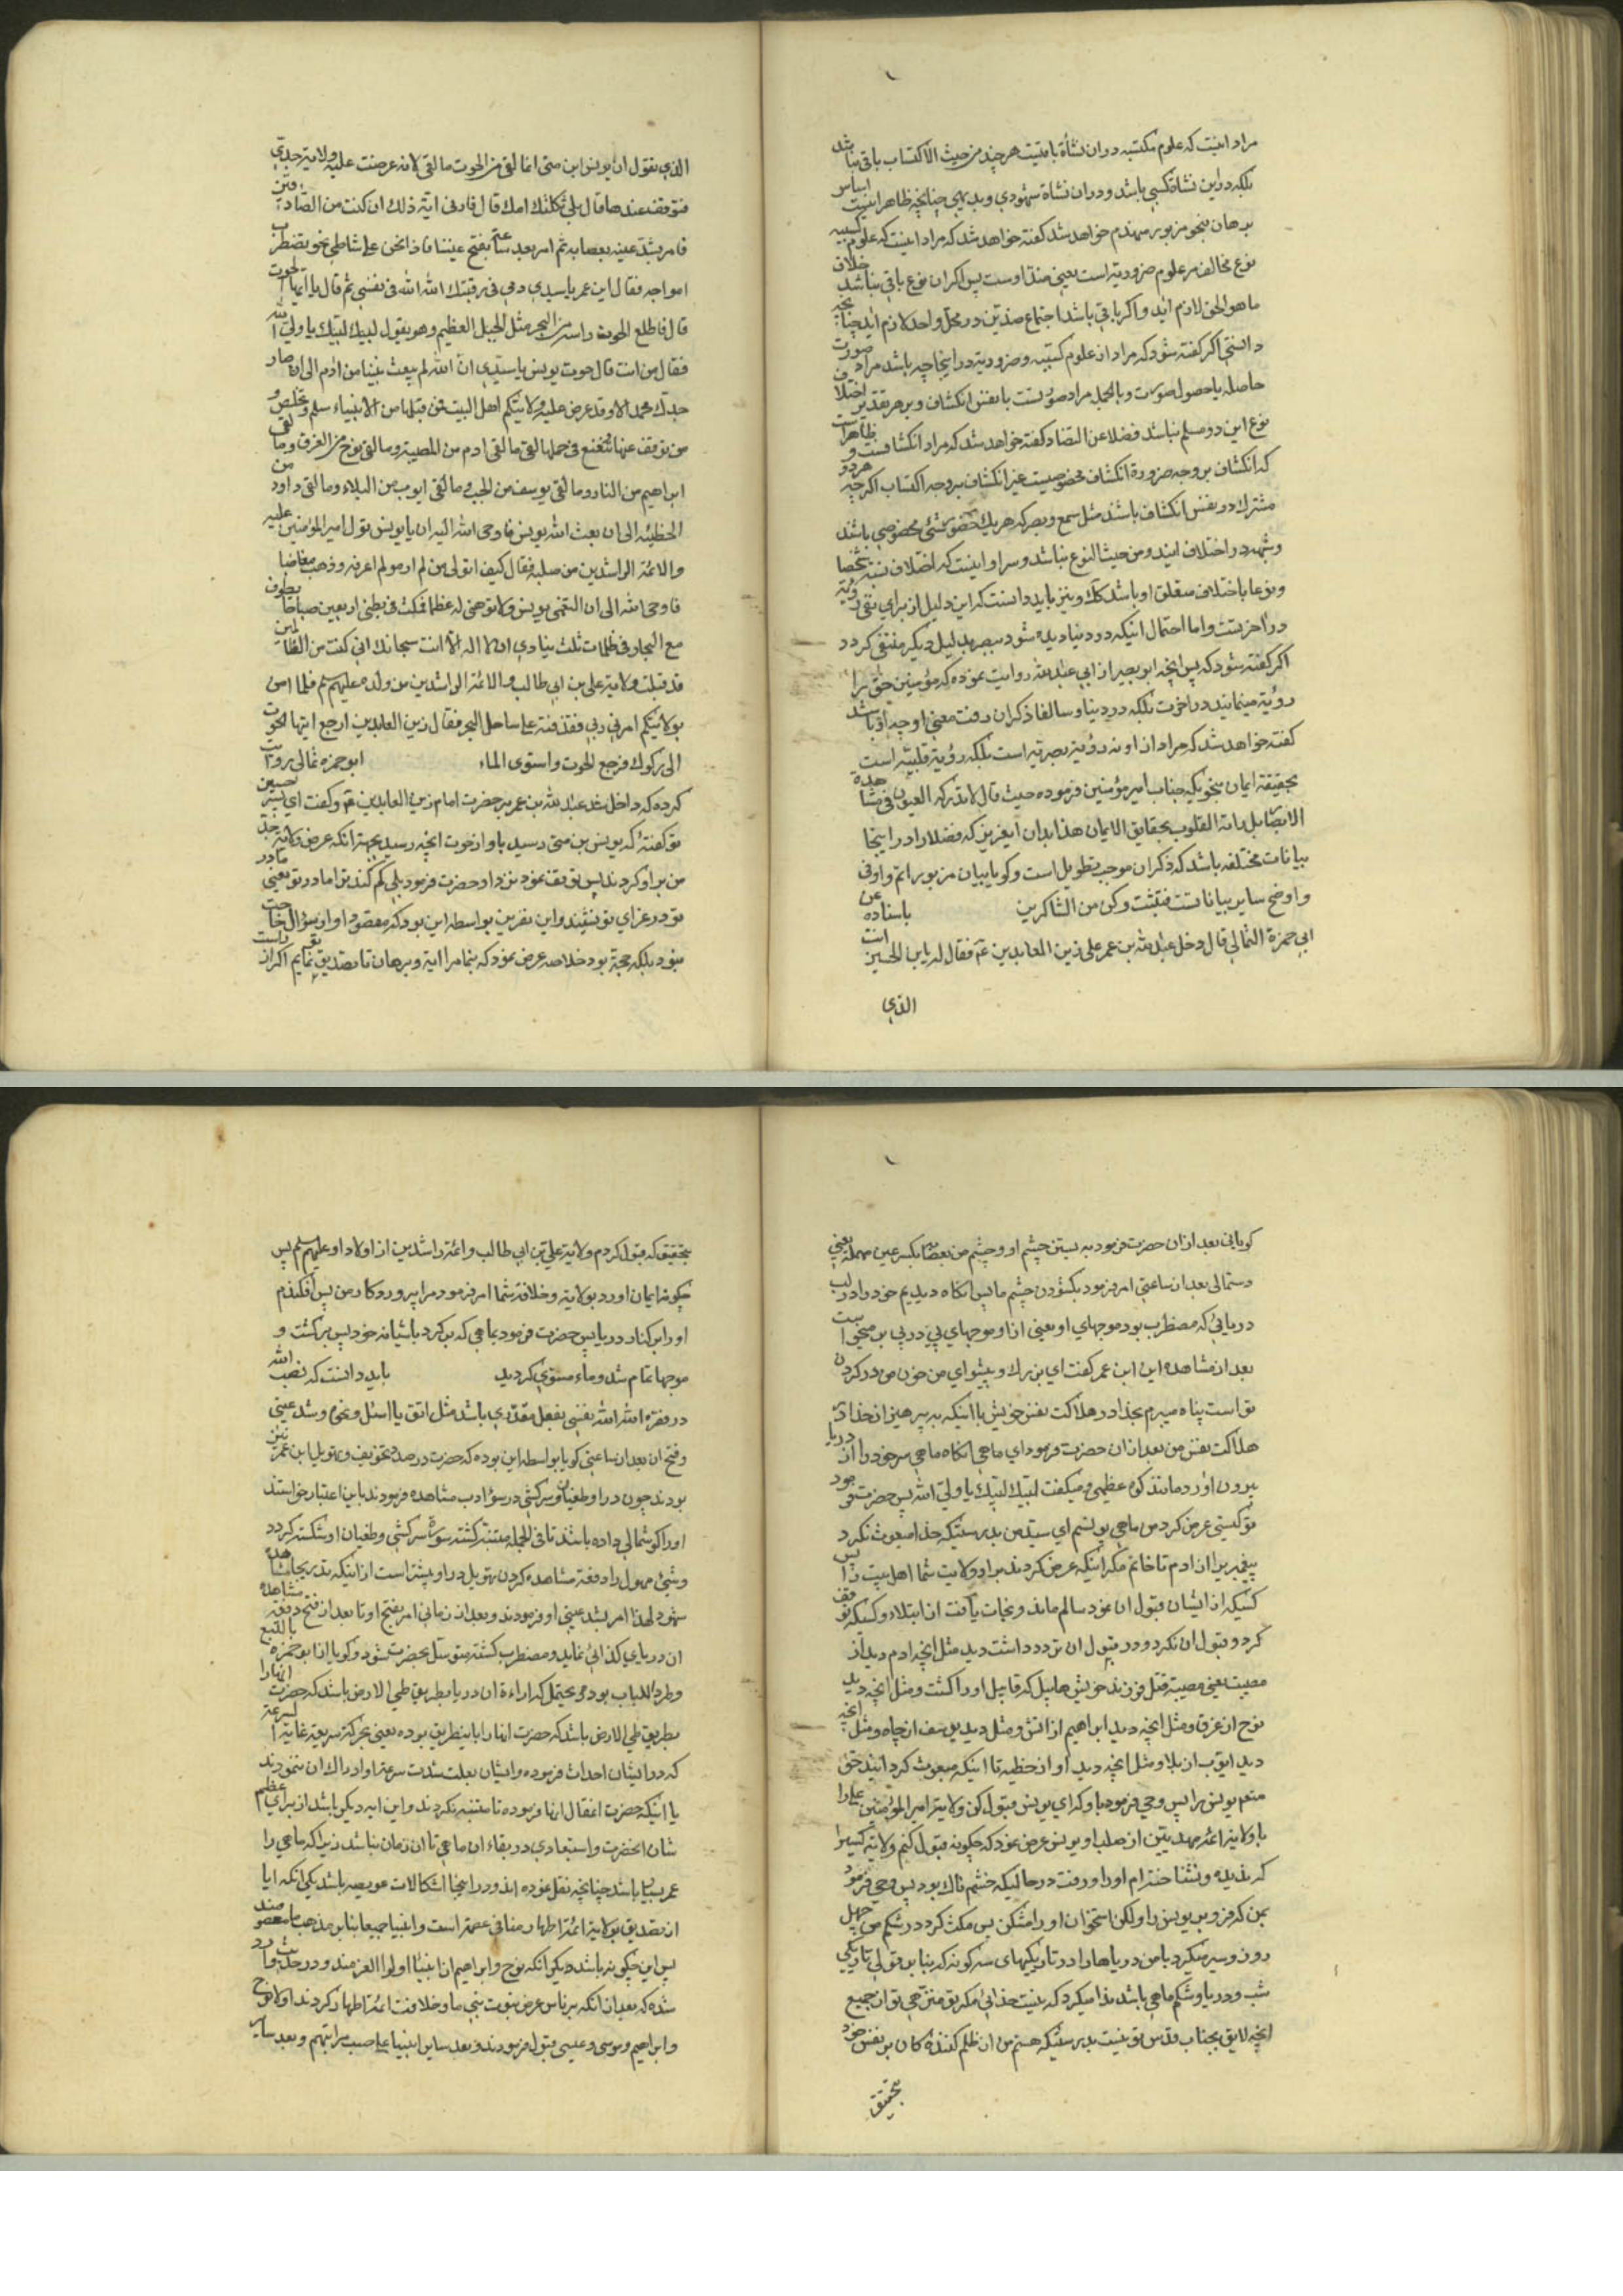 مراد اینست که علوم مکتسبه در ان نشأة باقیست هر چند من حیث الاکتساب باقی نباشد
بلکه در این نشاة کسبی باشد و در ان نشاة شهودی و بدیهی چنانچه ظاهر اینست اساس
برهان بنحو مزبور منهدم خواهد شد کفته خواهد شد که مراد اینست که علوم کسبیه
نوع مخالف مر علوم ضروریة است یعنی ضد اوست پس اکر ان نوع باقی نباشد خلاف
ما هو الحق لازم اید و اکر باقی باشد اجتماع ضدین در محل واحد لازم اید چنانچه
دانستی اکر کفته شود که مراد از علوم کسبیه و ضروریة در اینجا چه باشد مراد صورت
حاصله یا حصول صورت و بالجمله مراد صورتست یا نفس انکشاف و بر هر تقدیر اختلاف
نوع این دو مسلم نباشد فضلا عن التضاد کفته خواهد شد که مراد انکشافست و ظاهر است
که انکشاف بر وجه ضرورة انکشاف مخصوصیست غیر انکشاف بر وجه اکتساب اکرچه هر دو
مشترک در نفس انکشاف باشد مثل سمع و بصر که هر یک حضور شئی مخصوصی باشد
و شهد در اختلاف ایند و من حیث النوع نباشد و سزاوار اینست که اختلاف بینهما شخصا
و نوعا باختلاف متعلق او باشد کک و نیز باید دانست که این دلیل از برای نفی رؤیة
در اخرتست و اما احتمال اینکه در دنیا دیده شود ببصر بدلیل دیکر منتفی کردد
اکر کفته شود که پس انچه ابو بصیر از ابی عبدالله روایت نموده که مؤمنین حق را
رؤیة مینمایند در اخرت بلکه در دنیا و سالفا ذکر ان رفت معنی او چه باشد
کفته خواهد شد که مراد از او نه رؤیة بصریة است بلکه رؤیة قلبیه است
بحقیقة ایمان بنحویکه جناب امیر مؤمنین فرموده حیث قال لا تدرکه العیون فی مشاهدة
الابصار بل راته القلوب بحقایق الایمان هذا بدان ایعزیز که فضلا را در اینجا
بیانات مختلفه باشد که ذکر ان موجب تطویل است و کویا بیان مزبور اتم و اوفی
و اوضح سایر بیاناتست فتثبت و کن من الشاکرین باسناده عن
ابی حمزة الثمالی قال دخل عبدالله بن عمر علی زین العابدین عم فقال له یابن الحسین انت
الذی
الذی تقول ان یونس ابن متی انما لقی من الحوت ما لقی لانه عرضت علیه ولایة جدی
فتوقف عندها قال بلی ثکلتک امک قال فارنی ایة ذلک ان کنت من الصادقین
فامر بشد عینه بعصابة ثم امر بعد ساعة بفتح عیننا فاذا نحن علی شاطی بحر تضطرب
امواجه فقال ابن عمر یا سیدی دمی فی رقبتک الله الله فی نفسی ثم قال یا ایتها الحوت
قال فاطلع الحوت راسه من البحر مثل الجبل العظیم و هو یقول لبیک لبیک یا ولی الله
فقال من انت قال حوت یونس یا سیدی ان الله لم یبعث نبیا من ادم الی ان صار
جدک محمد الا و قد عرض علیه ولایتکم اهل البیت فمن قبلها من الانبیاء سلم و تخلص و
من توقف عنها و تمنع فی حملها لقی ما لقی ادم من المصیبة و ما لقی نوح من الغرق و ما لقی
ابراهیم من النار و ما لقی یوسف من الجب و ما لقی ایوب من البلاء و ما لقی داود من
الخطیئه الی ان بعث الله یونس فاوحی الله الیه ان یا یونس تول امیر المؤمنین علیه
و الائمة الراشدین من صلبه فقال کیف اتولی من لم اره و لم اعرفه و ذهب مغاضبا
فاوحی الله الی ان التقمی یونس و لا توهنی له عظما فمکث فی بطنی اربعین صباحا یطوف
مع البحار فی ظلمات ثلث ینادی ان لا اله الا انت سبحانک انی کنت من الظالمین
قد قبلت ولایة علی بن ابی طالب و الائمة الراشدین من ولده علیهم سم فلما امن
بولایتکم امرنی ربی فقذفته علی ساحل البحر فقال زین العابدین ارجع ایتها الحوت
الی وکرک فرجع الحوت و استوی الماء ابو حمزه ثمالی روایت
کرده که داخل شد عبدالله بن عمر بر حضرت امام زین العابدین عم و کفت ای پسر حسین
تو کفتهٔ که یونس بن متی رسید باو از حوت انچه رسید بجهة انکه عرض ولایة جد
من بر او کردند پس توقف نمود نزد او حضرت فرمود بلی کم کند ترا مادر تو یعنی مادر
تو در عزای تو نشیند و این نفرین بواسطه این بود که مقصود او از سؤال خالص
نبود بلکه حجة بود خلاصه عرض نمود که بنما مرا ایة و برهان تا تصدیق نمایم اکر از راست
کویانی بعد ازان حضرت فرمود به بستن چشم او و چشم من بعصابه بکسر عین مهمله یعنی
دستمالی بعد از ساعتی امر فرمود بکشودن چشم ما پس انکاه دیدیم خود را در لب
دریائی که مضطرب بود موجهای او یعنی از او موجهای پی در پی بر میخواست
بعد از مشاهده این ابن عمر کفت ای بزرک و پیشوای من خون من در کردن
تو است پناه میبرم بخدا در هلاکت نفس خویش یا اینکه به پرهیز از خدا در
هلاکت نفس من بعد ازان حضرت فرمود ای ماهی انکاه ماهی سر خود را از دریا
بیرون اورد مانند کوه عظیمی و میکفت لبیک لبیک یا ولی الله پس حضرت فرمود
تو کیستی عرض کرد من ماهی یونسم ای سید من بدرستیکه خدا مبعوث نکرد
پیغمبریرا از ادم تا خاتم مکر اینکه عرض کردند بر او ولایت شما اهل بیت را پس
کسیکه از ایشان قبول ان نمود سالم ماند و نجات یافت از ابتلاء و کسیکه توقف
کرد و قبول ان نکرد و در قبول ان تردد داشت دید مثل انچه ادم دید از
مصیبت یعنی مصیبة قتل فرزند خویش هابیل که قابیل او را کشت و مثل انچه دید
نوح از غرق و مثل انچه دید ابراهیم از اتش و مثل دید یوسف از چاه و مثل انچه
دید ایوب از بلا و مثل انچه دید او از خطیة تا اینکه مبعوث کردانید حق
منعم یونس را پس وحی فرمود باو که ای یونس قبول کن ولایة امیر المؤمنین علی را
با ولایة ائمه مهدیین از صلب او یونس عرض نمود که چکونه قبول کنم ولایة کسیرا
که ندیده و نشناخته‌ام او را و رفت در حالیکه خشم ناک بود پس وحی فرمود
بمن که فرو بر یونس را و لکن استخوان او را مشکن پس مکث کرد در شکم من چهل
روز و سیر میکرد با من دریاها را در تاریکیهای سه کونه که بنابر قولی تاریکی
شب و دریا و شکم ماهی باشد ندا میکرد که نیست خدائی مکر تو منزهی تو از جمیع
انچه لایق بجناب قدس تو نیست بدرستیکه هستم من از ظلم کننده کان بر نفس خود
بتحقیق
بتحقیق که قبول کردم ولایة علی بن ابی طالب و ائمه راشدین از اولاد او علیهم سلم پس
چکونه ایمان اورد بولایة و خلافة شما امر فرمود مرا پروردکار من پس افکندم
او را بر کنار دریا پس حضرت فرمود بماهی که بر کرد باشیانه خود پس برکشت و
موجها تمام شد و ماء مستوی کردید باید دانست که نصب الله
در فقره الله الله فی نفسی بفعل مقدری باشد مثل اتق یا اسئل و نحوه و شد عینی
و فتح ان بعد از ساعتی کویا بواسطه این بوده که حضرت در صدد تخویف و تهویل ابن عمر نیز
بودند چون در او طغیان و سرکشی در سؤ ادب مشاهده فرمودند باین اعتبار خواستند
او را کوشمالی داده باشند تا فی الجمله متنبه کشته سورة سرکشی و طغیان او شکسته کردد
و شئ مهول را دفعة مشاهده کردن تهویل در او بیشتر است از اینکه بتدریج مشاهده
شود لهذا امر بشد عینی او فرمودند و بعد از زمانی امر بفتح او تا بعد از فتح دفعة مشاهده
ان دریای کذائی نماید و مضطرب کشته متوسل بحضرت شود و کویا اذا ابو حمزه بالتبع
و طردا للباب بوده و یحتمل که اراءة ان دریا بطریق طی الارض باشد که حضرت انها را
بطریق طی الارض باشد که حضرت انها را باینطریق بوده یعنی بحرکة سریعة غایة السرعة
که در ایشان احداث فرموده و ایشان بعلت شدت سرعة او ادراک ان ننمودند
یا اینکه حضرت اغفال انها فرموده تا متنبه نکردند و این ایه دیکر باشد از برای عظم
شان انحضرت و استبعادی در بقاء ان ماهی تا ان زمان نباشد زیرا که ماهی را
عمر بسیار باشد چنانچه نقل نموده اند و در اینجا اشکالات عویصه باشد یکی انکه ابا
از تصدیق بولایة ائمة اطهار منافی عصمة است و انبیا جمیعا بنابر مذهب ما معصومند
پس این چکونه باشد دیکر انکه نوح و ابراهیم از انبیا اولوا العزمند و در حدیث وارد
شده که بعد ازانکه بر ناس عرض نبوت نبی ما و خلافت ائمة اطهار کردند اولا نوح
و ابراهیم و موسی و عیسی قبول فرمودند و بعد سایر انبیا علی حسب مراتبهم و بعد سایر